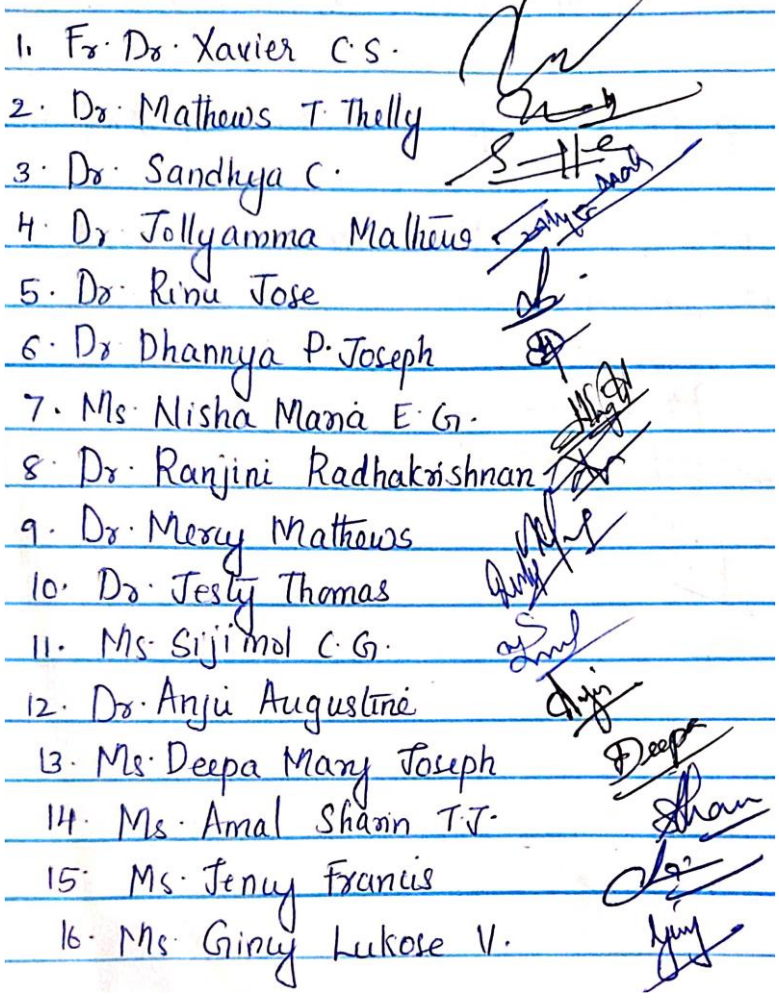 1. Fr. Dr. Xavier C.S.
2. Dr. Mathews T. Thelly
3. Dr. Sandhya C.
4. Dr Jollyamma Mathews
5. Dr. Rinu Jose
6. Dr Dhannya P. Joseph
7. Ms. Nisha Maria E.G.
8. Dr. Ranjini Radhakrishnan
9. Dr. Mercy Mathews
10. Dr. Jesty Thomas
11. Ms. Sijimol C.G.
12. Dr. Anju Augustine
13. Ms. Deepa Mary Joseph Deepa
14. Ms. Amal Sharin T.J.
15. Ms. Jency Francis
16. Ms. Gincy Lukose V.